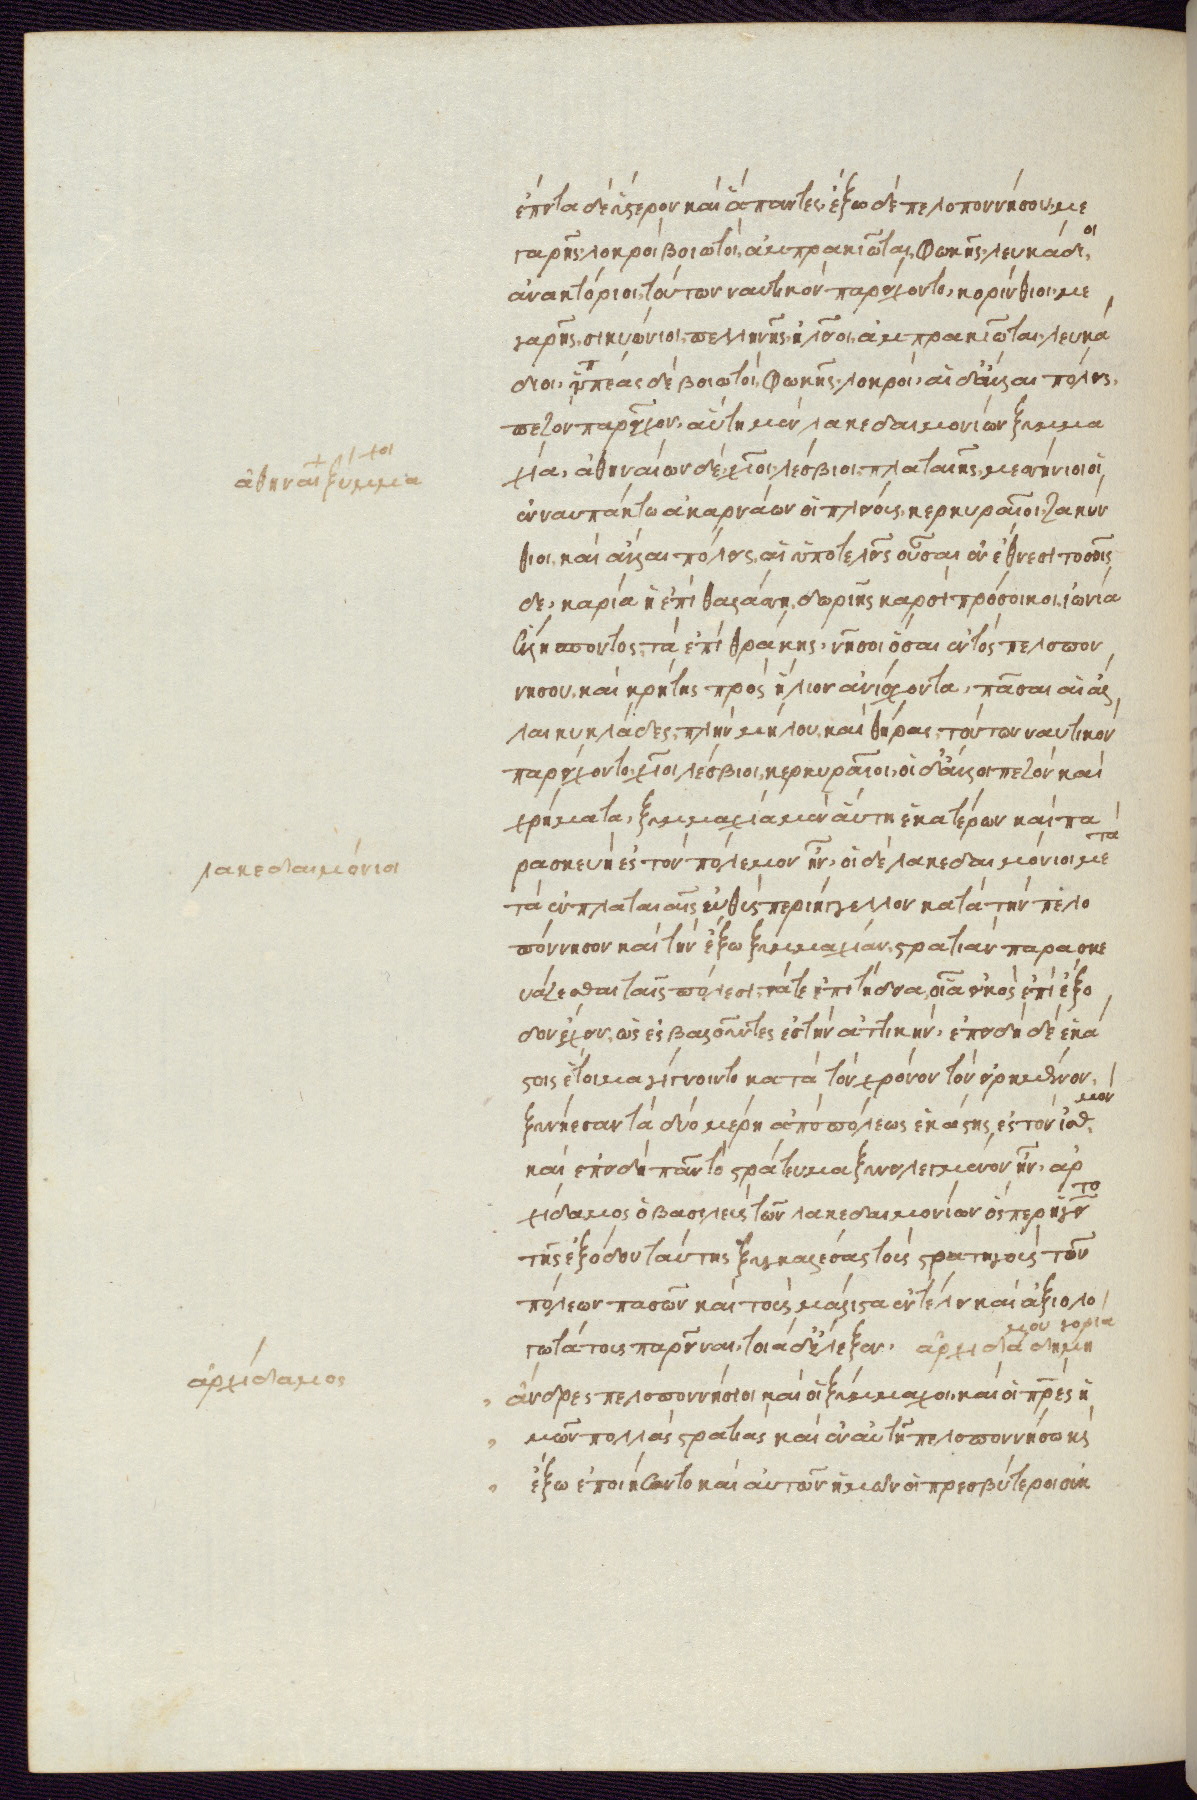 ἔπειτα δὲ ὕστερον καὶ ἅπαντες· ἔξω δὲ πελοποννήσου, με
γαρῆς· λοκροί· βοιωτοί· ἀμπρακιῶται· φωκῆς· λευκάδιοι,
ἀνακτόριοι, τούτων ναυτικὸν παρείχοντο, κορίνθιοι· με
γαρῆς· σικυώνιοι· πελληνῆς· ἠλεῖοι· ἀμπρακιῶται· λευκά
διοι, ἱππέας δὲ βοιωτοί, φωκῆς· λοκροί, αἱ δ' ἄλλαι πόλεις,
πεζὸν παρεῖχον, αὕτη μὲν λακεδαιμονίων ξυμμα
χία, ἀθηναίων δὲ, χῖοι· λέσβιοι· πλαταιῆς, μεσσήνιοι οἱ
ἐν ναυπάκτω ἀκαρνάνων οἱ πλείους, κερκυραῖοι· ζακύν
θιοι, καὶ ἄλλαι πόλεις, αἱ ὑποτελεῖς οὖσαι ἐν ἔθνεσι τοσοῖς
δε, καρία ἡ ἐπὶ θαλάσση, δωριῆς καρσὶ πρόσοικοι, ἰωνία
ἑλλήσποντος, τὰ ἐπὶ θράκης, νῆσοι ὅσαι ἐντὸς πελοπον
νήσου, καὶ κρήτης πρὸς ἥλιον ἀνίσχοντα, πᾶσαι αἱ ἄλ
λαι κυκλάδες, πλὴν μήλου, καὶ θήρας, τούτων ναυτικὸν
παρείχοντο, χῖοι λέσβιοι, κερκυραῖοι, οἱ δ' ἄλλοι πεζὸν καὶ
χρήματα, ξυμμαχία μὲν αὕτη ἑκατέρων καὶ πα
ρασκευὴ ἐς τὸν πόλεμον ἦν, οἱ δὲ λακεδαιμόνιοι με
τὰ τὰ ἐν πλαταιαῖς εὐθὺς περιήγγελλον κατὰ τὴν πελο
πόννησον καὶ τὴν ἔξω ξυμμαχίαν, στρατιὰν παρασκε
υάζεσθαι ταῖς πόλεσι, τά τε ἐπιτήδεια, οἷα εἰκὸς ἐπὶ ἔξο
δον ἔχειν, ὡς ἐς βαλοῦντες ἐς τὴν ἀττικήν, ἐπειδὴ δὲ ἑκά
στοις ἑτοῖμα γίγνοιτο κατὰ τὸν χρόνον τὸν εἰρημένον,
ξυνήεσαν τὰ δύο μέρη ἀπὸ πόλεως ἑκάστης, ἐς τὸν ἰσθμόν,
καὶ ἐπειδὴ πᾶν τὸ στράτευμα ξυνειλεγμένον ἦν, ἀρ
χίδαμος ὁ βασιλεὺς τῶν λακεδαιμονίων ὅσπερ ἡγεῖτο
τῆς ἐξόδου ταύτης ξυγκαλέσας τοὺς στρατηγοὺς τῶν
πόλεων πασῶν καὶ τοὺς μάλιστα ἐν τέλει καὶ ἀξιολο
γωτάτους παρεῖναι, τοιάδ' ἔλεξεν, ἀρχιδάμου δημηγορία
ἄνδρες πελοποννήσιοι καὶ οἱ ξύμμαχοι, καὶ οἱ πρες ἡ
μῶν πολλὰς στρατιὰς καὶ ἐν αὐτῆ πελοποννήσω κὶ
ἔξω ἐποιήσαντο καὶ αὐτῶν ἡμῶν οἱ πρεσβύτεροι οὐκ
ἀθηναίων ξύμμαχοι
λακεδαιμόνιοι
ἀρχίδαμος